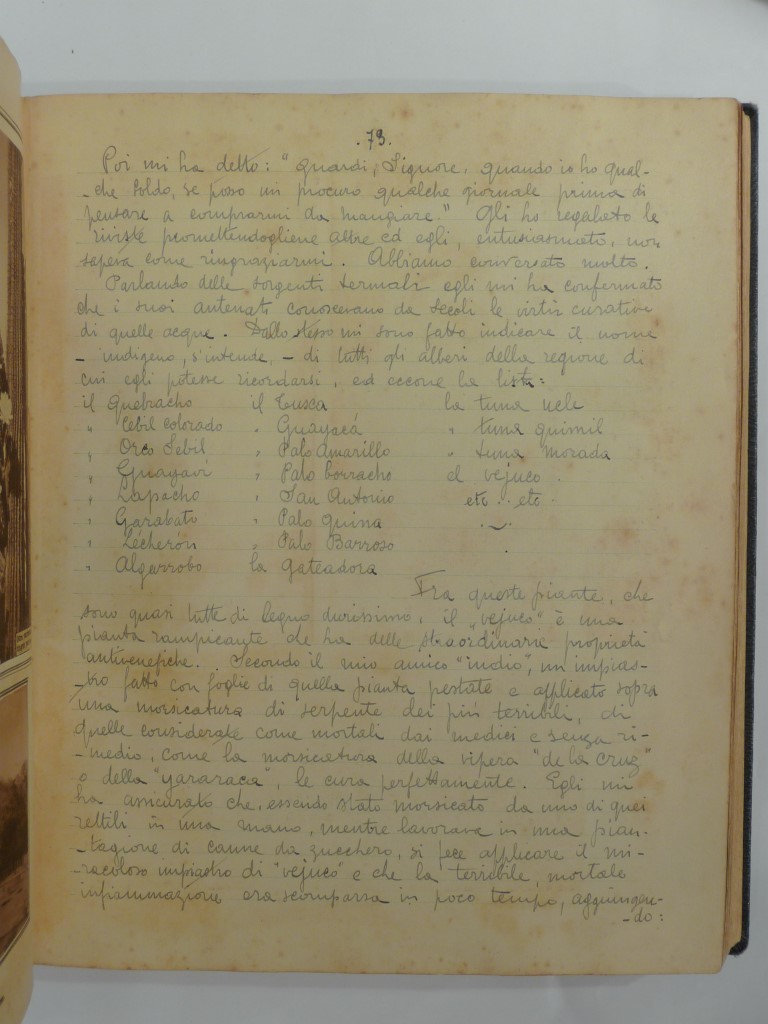 . 73 .
Poi mi ha detto: "Guardi, Signore, quando io ho qual-
-che soldo, se posso mi procuro qualche giornale prima di
pensare a comprarmi da mangiare." Gli ho regalato le
riviste promettendogliene altre ed egli, entusiasmato, non
sapeva come ringraziarmi. Abbiamo conversato molto.
Parlando delle sorgenti termali egli mi ha confermato
che i suoi antenati conoscevano da secoli le virtù curative
di quelle acque. Dallo stesso mi sono fatto indicare il nome
- indigeno, s'intende, - di tutti gli alberi della regione di
cui egli potesse ricordarsi, ed eccone la lista:
il Quebracho il Tusca la tuna ucle
" Cebil colorado " Guayacá " tuna quimil
" Orco Sebil " Palo Amarillo " tuna morada
" Guayavi " Palo borracho el vejuco .
" Lapacho " San Antonio etc.. etc.
" Garabato " Palo quina
" Lécherón " Palo Barroso
" Algarrobo la Gateadora
Fra queste piante, che
sono quasi tutte di legno durissimo, il "vejuco" è una
pianta rampicante che ha delle straordinarie proprietà
antivenefiche. Secondo il mio amico "indio", un impias-
-tro fatto con foglie di quella pianta pestate e applicato sopra
una morsicatura di serpente dei più terribili, di
quelle considerate come mortali dai medici e senza ri-
-medio, come la morsicatura della vipera "de la cruz"
o della "yararaca", le cura perfettamente. Egli mi
ha assicurato che, essendo stato morsicato da uno di quei
rettili in una mano, mentre lavorava in una pian-
-tagione di canne da zucchero, si fece applicare il mi-
-racoloso impiastro di "vejuco" e che la terribile, mortale
infiammazione era scomparsa in poco tempo, aggiungen-
-do: